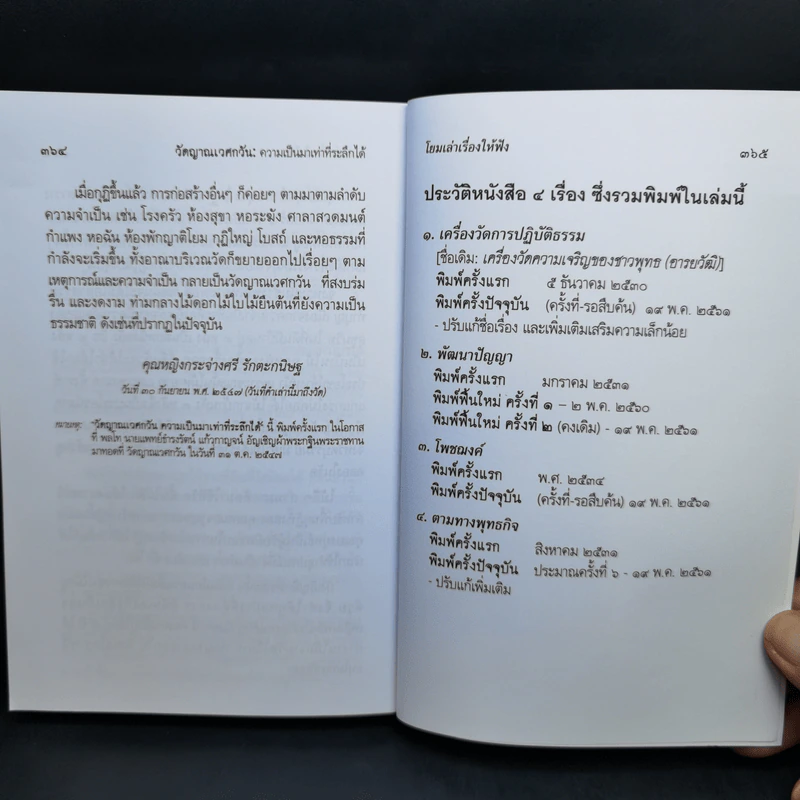 ๓๖๔ วัดญาณเวศกวัน: ความเป็นมาเท่าที่ระลึกได้
เมื่อกุฏิขึ้นแล้ว การก่อสร้างอื่นๆ ก็ค่อยๆ ตามมาตามลำดับ
ความจำเป็น เช่น โรงครัว ห้องสุขา หอระฆัง ศาลาสวดมนต์
กำแพง หอฉัน ห้องพักญาติโยม กุฏิใหญ่ โบสถ์ และหอธรรมที่
กำลังจะเริ่มขึ้น ทั้งอาณาบริเวณวัดก็ขยายออกไปเรื่อยๆ ตาม
เหตุการณ์และความจำเป็น กลายเป็นวัดญาณเวศกวัน ที่สงบร่ม
รื่น และงดงาม ท่ามกลางไม้ดอกไม้ใบไม้ยืนต้นที่ยังความเป็น
ธรรมชาติ ดังเช่นที่ปรากฏในปัจจุบัน
คุณหญิงกระจ่างศรี รักตะกนิษฐ
วันที่ ๓๐ กันยายน พ.ศ. ๒๕๔๗ (วันที่คำเล่านี้มาถึงวัด)
หมายเหตุ: "วัดญาณเวศกวัน ความเป็นมาเท่าที่ระลึกได้" นี้ พิมพ์ครั้งแรก ในโอกาส
ที่ พลโท นายแพทย์ดำรงรัตน์ แก้วกาญจน์ อัญเชิญผ้าพระกฐินพระราชทาน
มาทอดที่ วัดญาณเวศกวัน ในวันที่ ๓๑ ต.ค. ๒๕๔๗
โยมเล่าเรื่องให้ฟัง ๓๖๕
ประวัติหนังสือ ๔ เรื่อง ซึ่งรวมพิมพ์ในเล่มนี้
๑. เครื่องวัดการปฏิบัติธรรม
[ชื่อเดิม: เครื่องวัดความเจริญของชาวพุทธ (อารยวัฒิ)]
พิมพ์ครั้งแรก ๕ ธันวาคม ๒๕๓๐
พิมพ์ครั้งปัจจุบัน (ครั้งที่-รอสืบค้น) ๑๙ พ.ค. ๒๕๖๑
- ปรับแก้ชื่อเรื่อง และเพิ่มเติมเสริมความเล็กน้อย
๒. พัฒนาปัญญา
พิมพ์ครั้งแรก มกราคม ๒๕๓๑
พิมพ์ฟื้นใหม่ ครั้งที่ ๑ – ๒ พ.ค. ๒๕๖๐
พิมพ์ฟื้นใหม่ ครั้งที่ ๒ (คงเดิม) - ๑๙ พ.ค. ๒๕๖๑
๓. โพชฌงค์
พิมพ์ครั้งแรก พ.ศ. ๒๕๓๔
พิมพ์ครั้งปัจจุบัน (ครั้งที่-รอสืบค้น) ๑๙ พ.ค. ๒๕๖๑
๔. ตามทางพุทธกิจ
พิมพ์ครั้งแรก สิงหาคม ๒๕๓๑
พิมพ์ครั้งปัจจุบัน ประมาณครั้งที่ ๖ - ๑๙ พ.ค. ๒๕๖๑
- ปรับแก้เพิ่มเติม